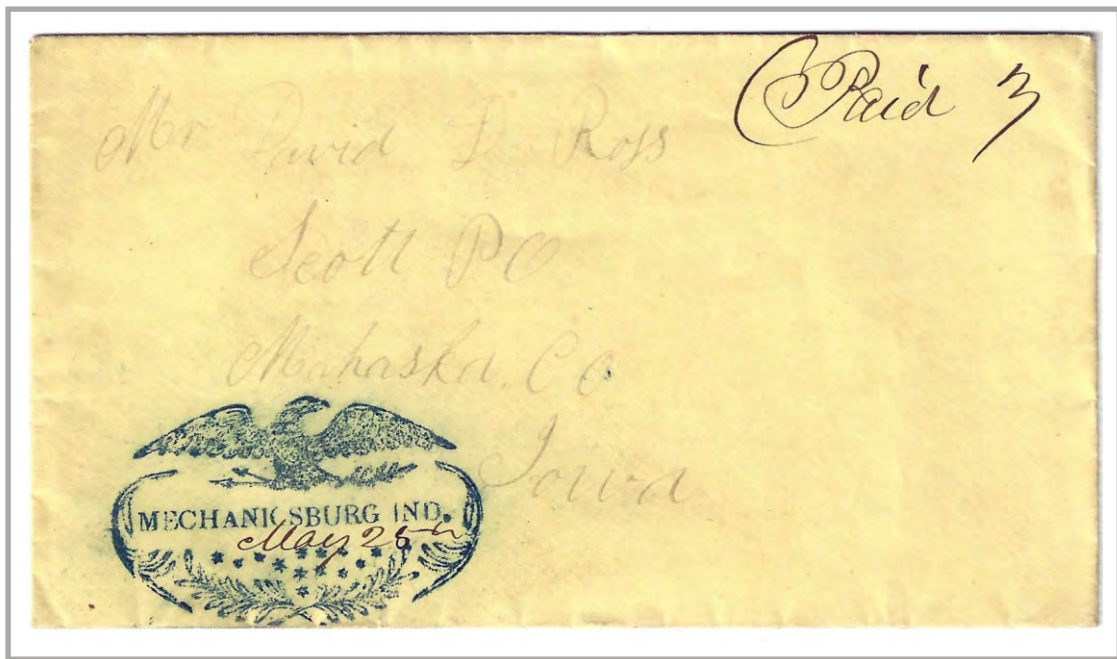 Paid 3
Mr David D. Ross
Scott PO
Mahaska. Co
Iowa
MECHANICSBURG IND.
May 25th